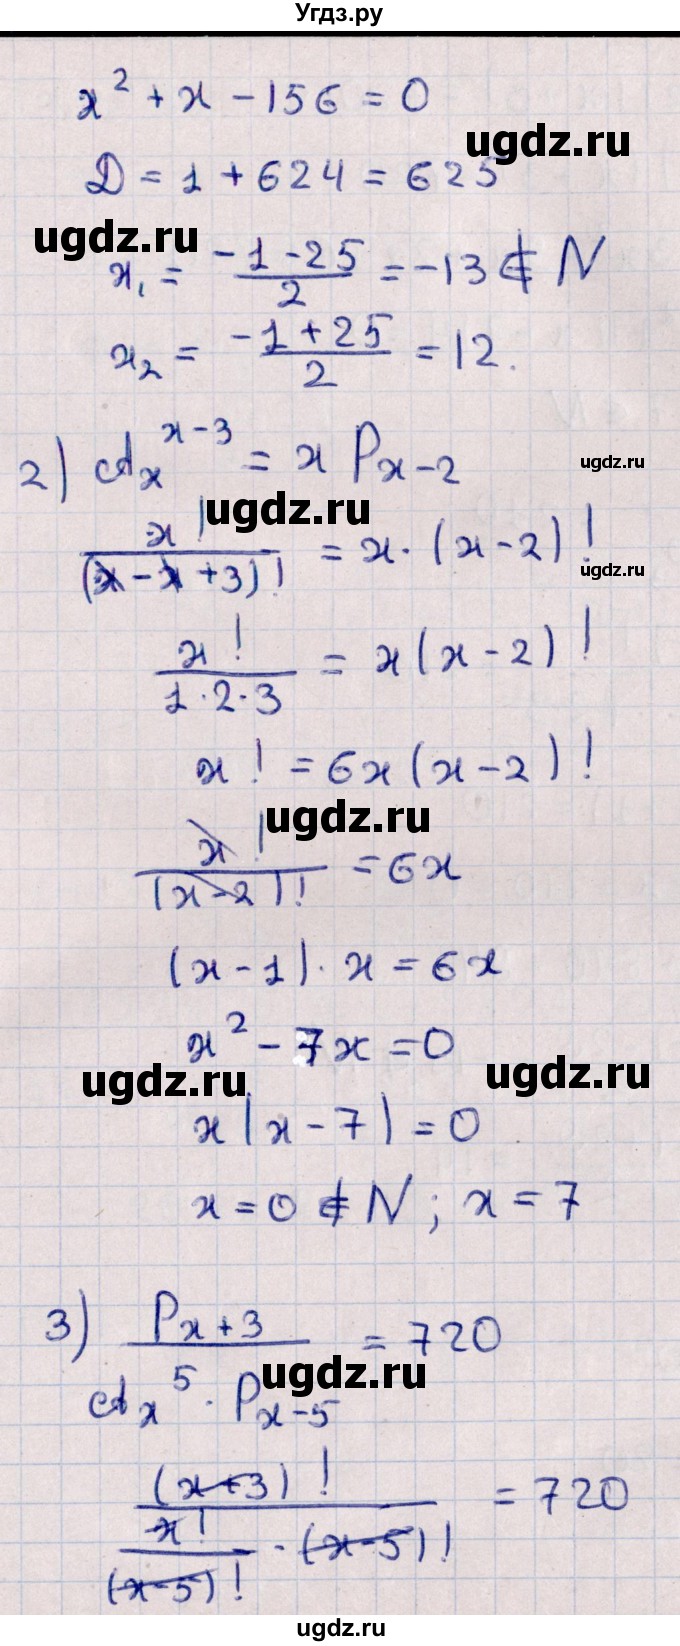 Угдз.ру
x² + x - 156 = 0
ugdz.ru
D = 1 + 624 = 625
ugdz.ru
x₁ = (-1 - 25)/2 = -13 ∉ N
x₂ = (-1 + 25)/2 = 12.
2) A_x^(x-3) = x P_(x-2)
ugdz.ru
ugdz.ru
x!/(x - x + 3)! = x · (x - 2)!
ugdz.ru
x!/(1·2·3) = x(x - 2)!
x! = 6x(x - 2)!
ugdz.ru
x!/(x - 2)! = 6x
(x - 1) · x = 6x
x² - 7x = 0
ugdz.ru
ugdz.ru
x(x - 7) = 0
x = 0 ∉ N; x = 7
3) P_(x+3)/(A_x^5 · P_(x-5)) = 720
ugdz.ru
(x+3)!/(x!/(x-5)! · (x-5)!) = 720
ugdz.ru